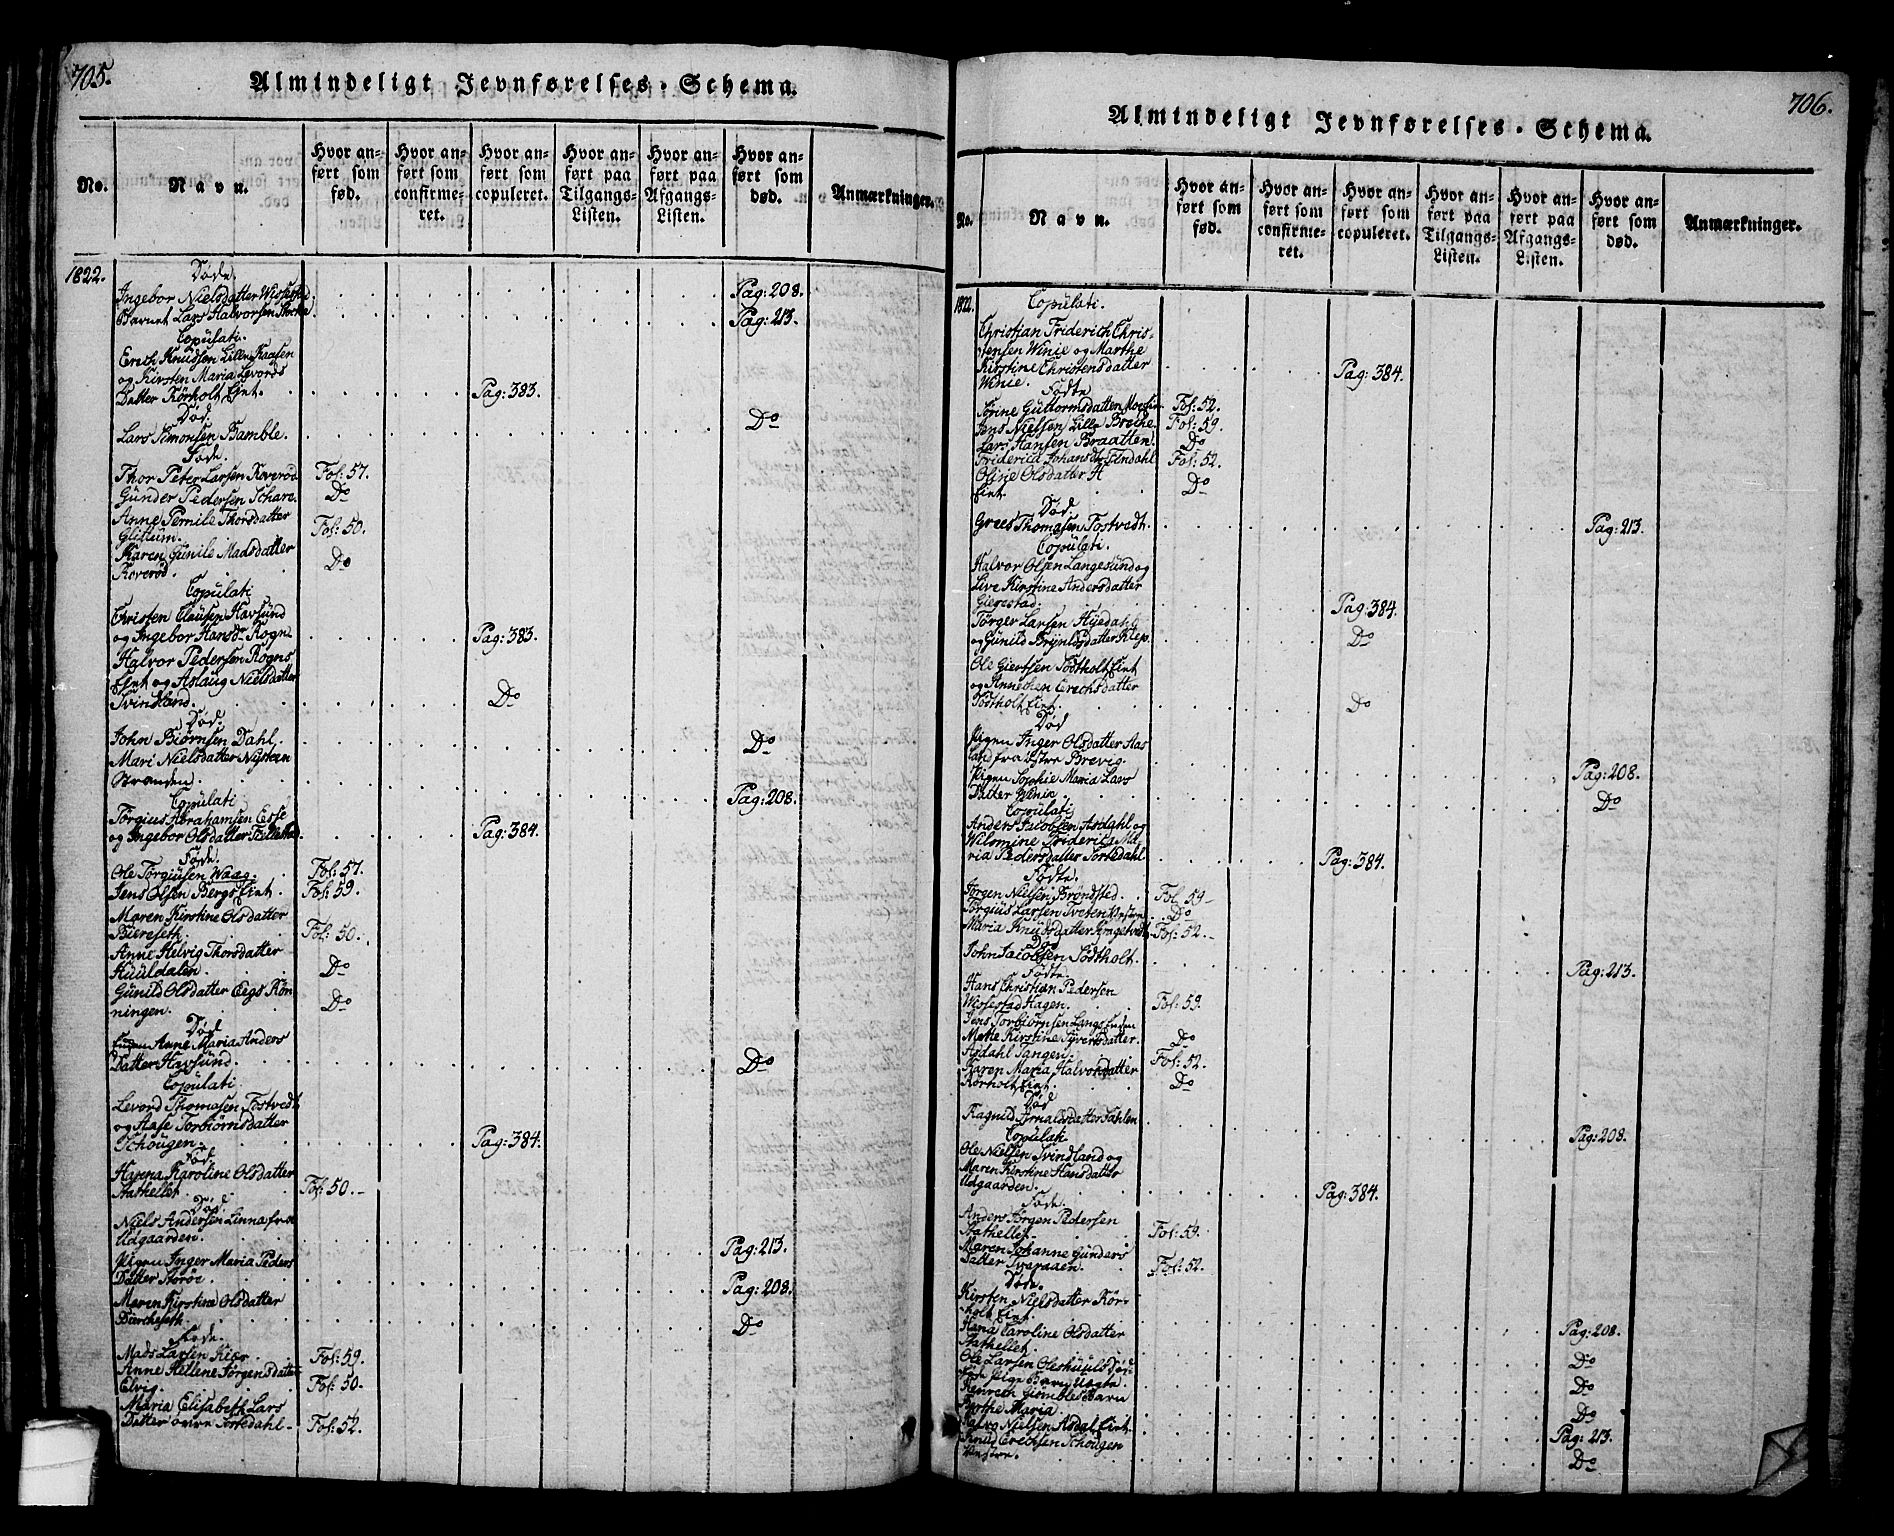 705.
Almindeligt Jevnførelses-Schema.
No.
Navn.
Hvor an-
ført som
fød.
Hvor an-
ført som
confirme-
ret.
Hvor an-
ført som
copuleret.
Hvor an-
ført paa
Tilgangs-
Listen.
Hvor an-
ført paa
Afgangs-
Listen.
Hvor an-
ført som
død.
Anmærkninger.
1822.
Døde.
Ingebor Nielsdatter Pag: 208.
Barnet Lars Halvorsen Pag: 213.
Copulati.
Erich Knudsen Lille Kaasen
og Kirsten Maria Levords
Datter Kørholt Eint. Pag: 383.
Død.
Lars Simonsen Bamble. Do
Føde.
Thor Peter Larsen Roverød Fol: 57.
Gunder Pedersen Do
Anne Pernile Thorsdatter
Glittum. Fol: 50.
Karen Gunile Madsdatter
Roverød. Do
Copulati
Christen Clausen Havsund
og Ingebor Hansdr Rogn Pag: 383.
Halvor Pedersen Rogns
Eint og Aslaug Nielsdatter
Svindland. Do
Død.
John Biørnsen Dahl. Do
Mari Nielsdatter
Stranden. Pag: 208.
Copulati
Torgius Abrahamsen
og Ingebor Olsdatter Pag: 384.
Føde.
Ole Torgiusen Waag. Fol: 57.
Jens Olsen Bergs Eint. Fol: 59.
Maren Kirstine Olsdatter
Fol: 50.
Anne Helvig Thorsdatter
Huuldalen. Do
Gunild Olsdatter Eegs Røn
ningen. Do
Død
Anne Maria Anders
Datter Havsund. Do
Copulati
Levord Thomasen Tostvedt
og Aase Torbiørnsdatter
Schougen. Pag: 384.
Fød.
Hanna Karoline Olsdatter
Stathellet. Fol: 50.
Død.
Niels Andersen Linna fra
Udgaarden. Pag: 213.
Pigen Inger Maria Peders
Datter Pag: 208.
Maren Kirstine Olsdatter
Do
Føde.
Mads Larsen Kiær. Fol: 59.
Anne Hellene Jørgensdatter
Elvig. Fol: 50.
Maria Elisabeth Lars
Datter øvre Tortedahl Fol: 52.
706.
Almindeligt Jevnførelses-Schema.
No.
Navn.
Hvor an-
ført som
fød.
Hvor an-
ført som
confirme-
ret.
Hvor an-
ført som
copuleret.
Hvor an-
ført paa
Tilgangs-
Listen.
Hvor an-
ført paa
Afgangs-
Listen.
Hvor an-
ført som
død.
Anmærkninger.
1822.
Copulati.
Christian Friderich Chris-
tensen Winie og Marthe
Kirstine Christensdatter
Winie. Pag: 384.
Fødte
Torine Guttormsdatter Fol: 52.
Jens Nielsen Lille Breche. Fol: 59.
Lars Hansen Braatten. Do
Friderica Johansdr Findahl Fol: 52.
Oline Olsdatter
Eint. Do
Død
Grees Thomasen Tostvedt. Pag: 213.
Copulati.
Halvor Olsen Langesund og
Live Kirstine Andersdatter
Giegestad. Pag: 384.
Tørger Larsen Hydahl
og Gunild Brynildsdatter Klep. Do
Ole Giertsen Tødtholt Eint
og Annechen Erechsdatter
Tødtholt Eint. Do
Død
Pigen Inger Olsdatter Aas
land fra østre Brevig. Pag: 208.
Pigen Sophie Maria Lars
Datter Do
Copulati
Anders Jacobsen Asdahl og
Wilomine Friderica Ma
ria Pedersdatter Tortedahl Pag: 384.
Fødte.
Jørgen Nielsen Brøndsted. Fol: 59
Torgius Larsen Tveten Do
Maria Knudsdatter Fol: 52.
Død
John Jacobsen Tødtholt. Pag: 213.
Fødte.
Hans Christian Pedersen
Wissestad Hagen. Fol: 59.
Jens Torbiørnsen Langs Enden Do
Mette Kirstine Syversdatter.
Asdahl Tangen. Fol: 52.
Karen Maria Halvorsdatter
Kørholt Eint. Do
Død
Ragnild Arnoldsdatter Dahlen Pag: 208.
Copulati
Ole Nielsen Svindland og
Maren Kirstine Hansdatter
Udgaarden. Pag: 384.
Føde.
Anders Jørgen Pedersen
Stathellet. Fol: 59.
Maren Johanne Gunders
Datter Fol: 52.
Døde.
Kirsten Nielsdatter Kør-
holt Eint Pag: 208.
Hana Caroline Olsdatter
Stathellet. Do
Ole Larsen Oleshuuls Død
føde Pige Barn Do
Henrich Gjømbles Barn
Dorthe Maria Do
Halvor Nielsen Asdal Eint. Pag: 213.
Knud Erechsen Schougen
Do